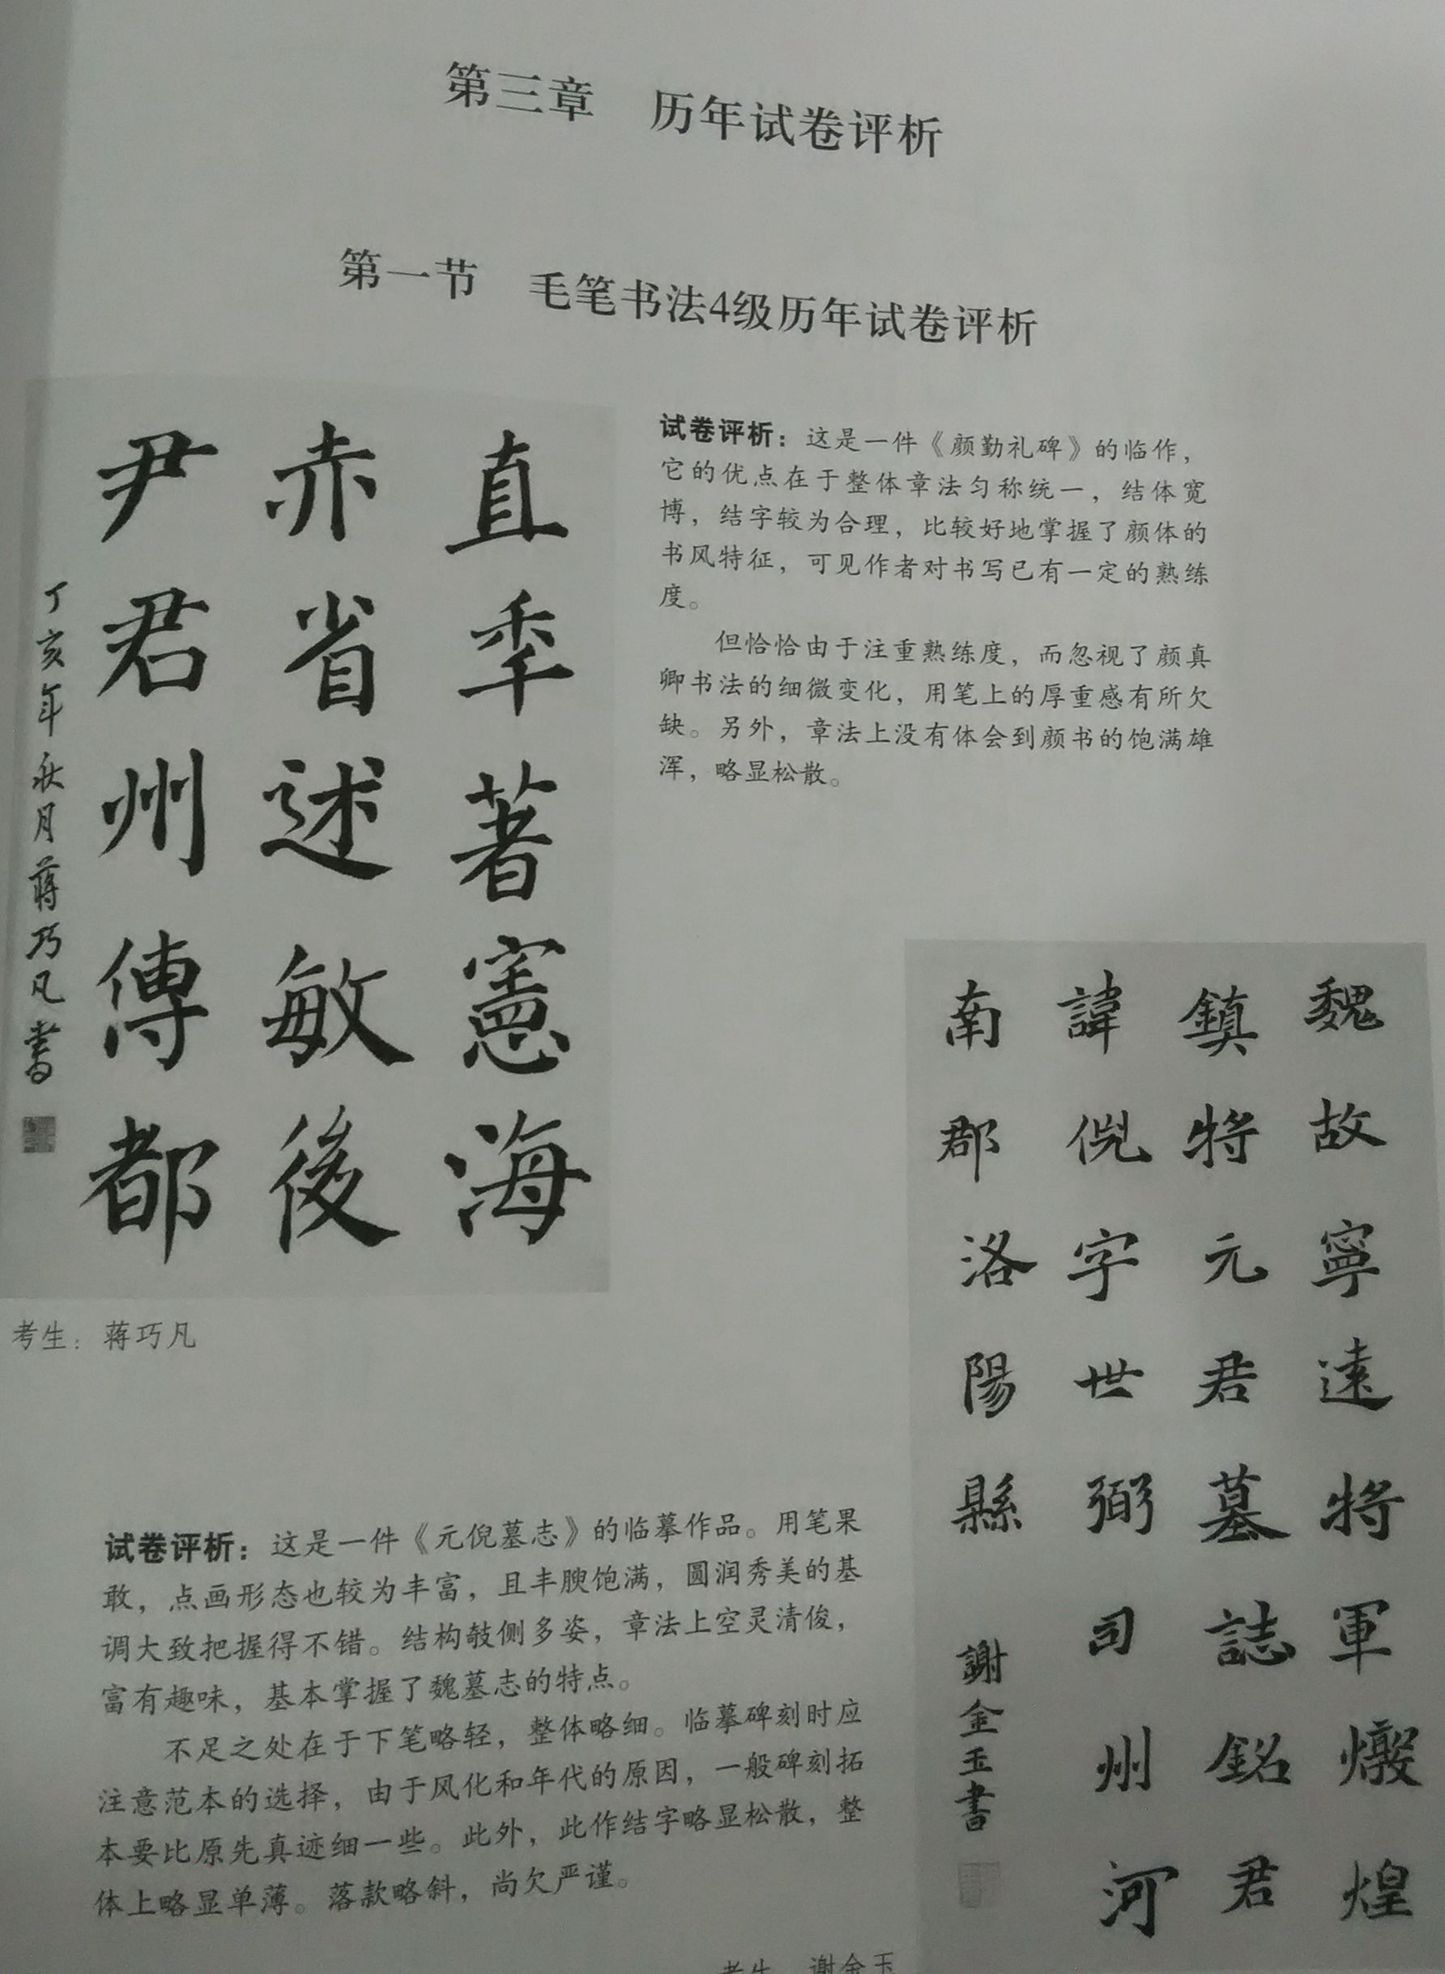 第三章 历年试卷评析
第一节 毛笔书法4级历年试卷评析
直季著憲海
赤省述敏後
尹君州傳都
丁亥年秋月蒋巧凡書
考生：蒋巧凡
试卷评析：这是一件《颜勤礼碑》的临作，
它的优点在于整体章法匀称统一，结体宽
博，结字较为合理，比较好地掌握了颜体的
书风特征，可见作者对书写已有一定的熟练
度。
但恰恰由于注重熟练度，而忽视了颜真
卿书法的细微变化，用笔上的厚重感有所欠
缺。另外，章法上没有体会到颜书的饱满雄
浑，略显松散。
魏故寧遠將軍燉煌
鎮將元君墓誌銘君
諱倪字世弼司州河
南郡洛陽縣
謝金玉書
试卷评析：这是一件《元倪墓志》的临摹作品。用笔果
敢，点画形态也较为丰富，且丰腴饱满，圆润秀美的基
调大致把握得不错。结构攲侧多姿，章法上空灵清俊，
富有趣味，基本掌握了魏墓志的特点。
不足之处在于下笔略轻，整体略细。临摹碑刻时应
注意范本的选择，由于风化和年代的原因，一般碑刻拓
本要比原先真迹细一些。此外，此作结字略显松散，整
体上略显单薄。落款略斜，尚欠严谨。
考生 谢金玉